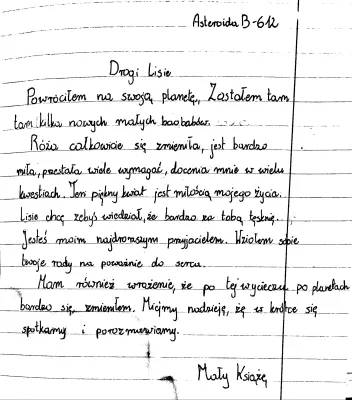 Asteroida B-612
Drogi Lisie
Powróciłem na swoją planetę, Zastałem tam
tam kilka nowych małych baobabów.
Róża całkowicie się zmieniła, jest bardzo
miła, przestała wiele wymagać, docenia mnie w wielu
kwestiach. Ten piękny kwiat jest miłością mojego życia.
Lisie chcę żebyś wiedział, że bardzo za tobą tęsknię.
Jesteś moim najdroższym przyjacielem. Wziołem sobie
twoje rady na poważnie do serca.
Mam również wrażenie, że po tej wycieczce po planetach
bardzo się zmieniłem. Miejmy nadzieję, żę w krótce się
spotkamy i porozmawiamy.
Mały Książę